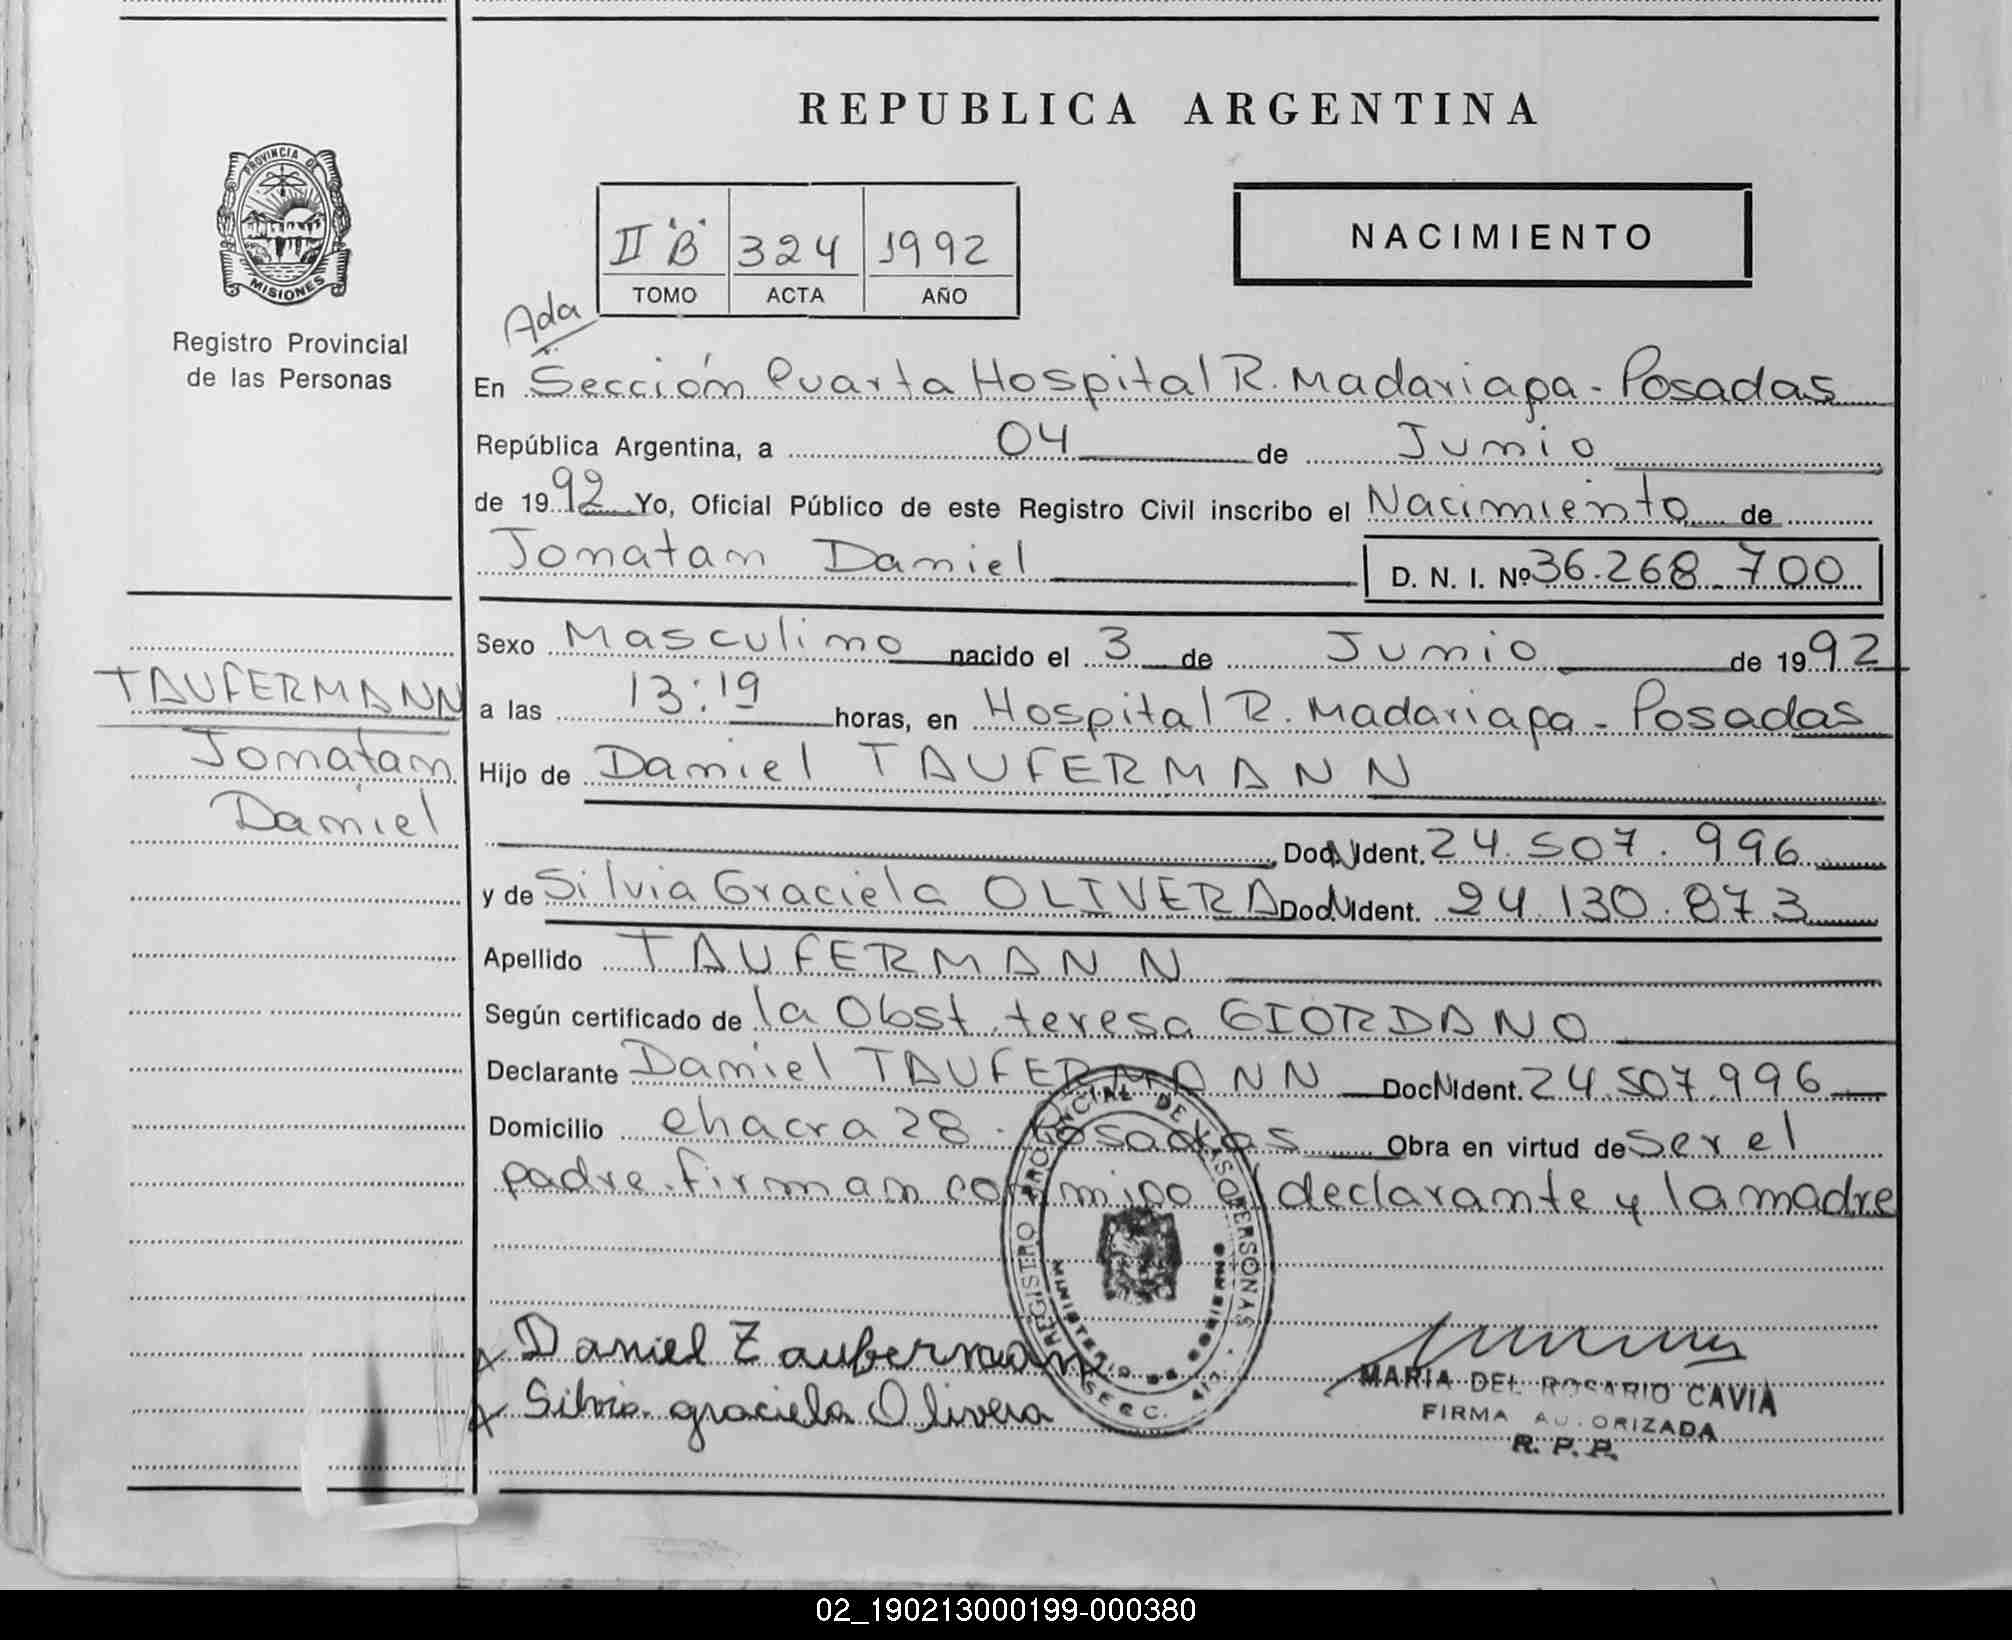 REPUBLICA ARGENTINA
PROVINCIA DE
MISIONES
Registro Provincial
de las Personas
NACIMIENTO
II "B" 324 1992
TOMO ACTA AÑO
Ada
En Sección Cuarta Hospital R. Madariaga - Posadas
República Argentina, a 04 de Junio
de 1992 Yo, Oficial Público de este Registro Civil inscribo el Nacimiento de
Jonatan Daniel D. N. I. Nº 36.268.700
Sexo Masculino nacido el 3 de Junio de 1992
a las 13:19 horas, en Hospital R. Madariaga - Posadas
Hijo de Daniel TAUFERMANN
Doc.N.Ident. 24.507.996
y de Silvia Graciela OLIVERA Doc.N.Ident. 24.130.873
Apellido TAUFERMANN
Según certificado de la Obst. teresa GIORDANO
Declarante Daniel TAUFERMANN Doc.N.Ident. 24.507.996
Domicilio chacra 28 - Posadas Obra en virtud de ser el
padre. firman conmigo el declarante y la madre
TAUFERMANN
Jonatan
Daniel
REGISTRO PROVINCIAL DE LAS PERSONAS
MINISTERIO DE GOBIERNO
SECC. 4ta.
Daniel Tauferman
Silvia graciela Olivera
MARIA DEL ROSARIO CAVIA
FIRMA AUTORIZADA
R. P. P.
02_190213000199-000380